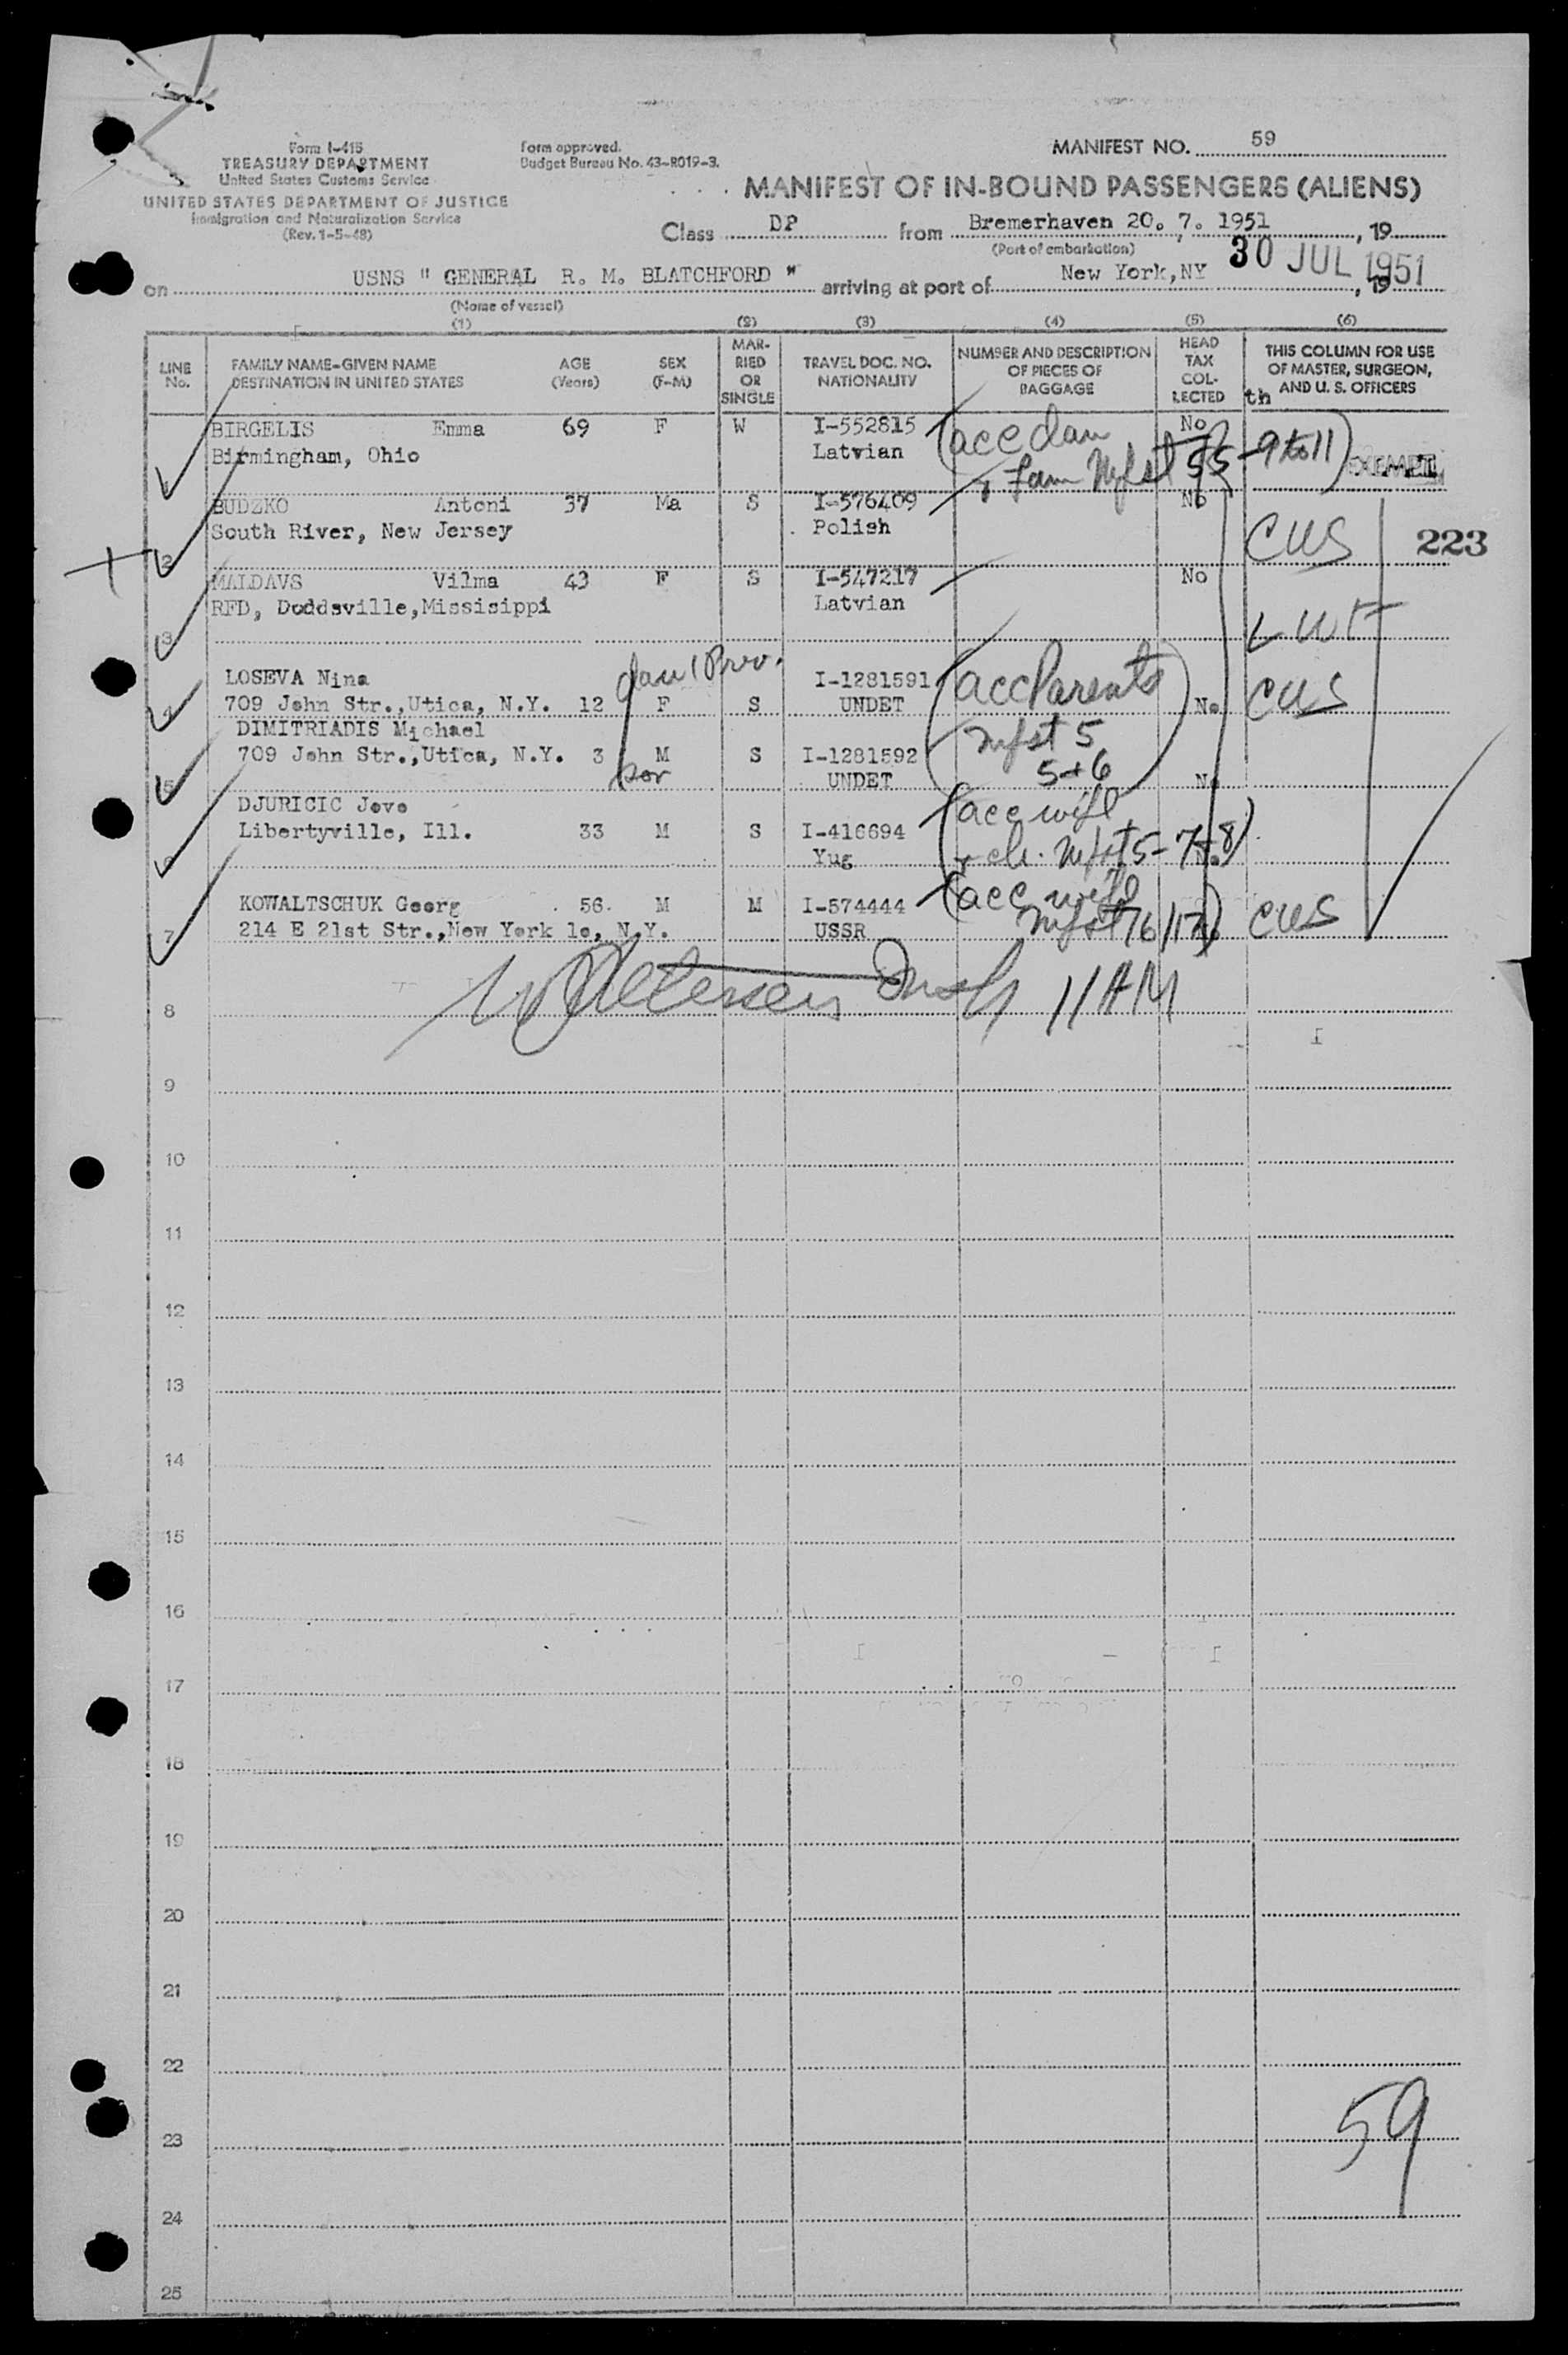 Form I-415
TREASURY DEPARTMENT
United States Customs Service
UNITED STATES DEPARTMENT OF JUSTICE
Immigration and Naturalization Service
(Rev. 1-5-48)
Form approved.
Budget Bureau No. 43-R019-3.
MANIFEST NO. 59
MANIFEST OF IN-BOUND PASSENGERS (ALIENS)
Class DP from Bremerhaven 20. 7. 1951, 19
(Port of embarkation)
on USNS " GENERAL R. M. BLATCHFORD " arriving at port of New York, NY 30 JUL 1951, 19
(Name of vessel)
(1) (2) (3) (4) (5) (6)
LINE No.
FAMILY NAME-GIVEN NAME
DESTINATION IN UNITED STATES
AGE (Years)
SEX (F-M)
MAR-RIED OR SINGLE
TRAVEL DOC. NO. NATIONALITY
NUMBER AND DESCRIPTION OF PIECES OF BAGGAGE
HEAD TAX COL-LECTED
THIS COLUMN FOR USE OF MASTER, SURGEON, AND U. S. OFFICERS
th
BIRGELIS Emma 69 F W I-552815 (acc dau No
Birmingham, Ohio Latvian + fam Mfst 55-9 to 11) EXEMPT
1
BUDZKO Antoni 37 Ma S I-576409 No
South River, New Jersey Polish CUS 223
2
MALDAVS Vilma 43 F S I-547217 No
RFD, Doddsville, Missisippi Latvian
3 LWF
LOSEVA Nina dau I-1281591 (acc Parents
4 709 John Str., Utica, N.Y. 12 F S UNDET No CUS
DIMITRIADIS Michael Mfst 5
709 John Str., Utica, N.Y. 3 M S I-1281592 5+6)
5 UNDET No
DJURICIC Jovo (acc wife
Libertyville, Ill. 33 M S I-416694 + ch. Mfst 5-7+8)
6 Yug No
KOWALTSCHUK Georg 56 M M I-574444 (acc wife
7 214 E 21st Str., New York 10, N.Y. USSR Mfst 16/17) CUS
8 11 AM
9
10
11
12
13
14
15
16
17
18
19
20
21
22
23
59
24
25